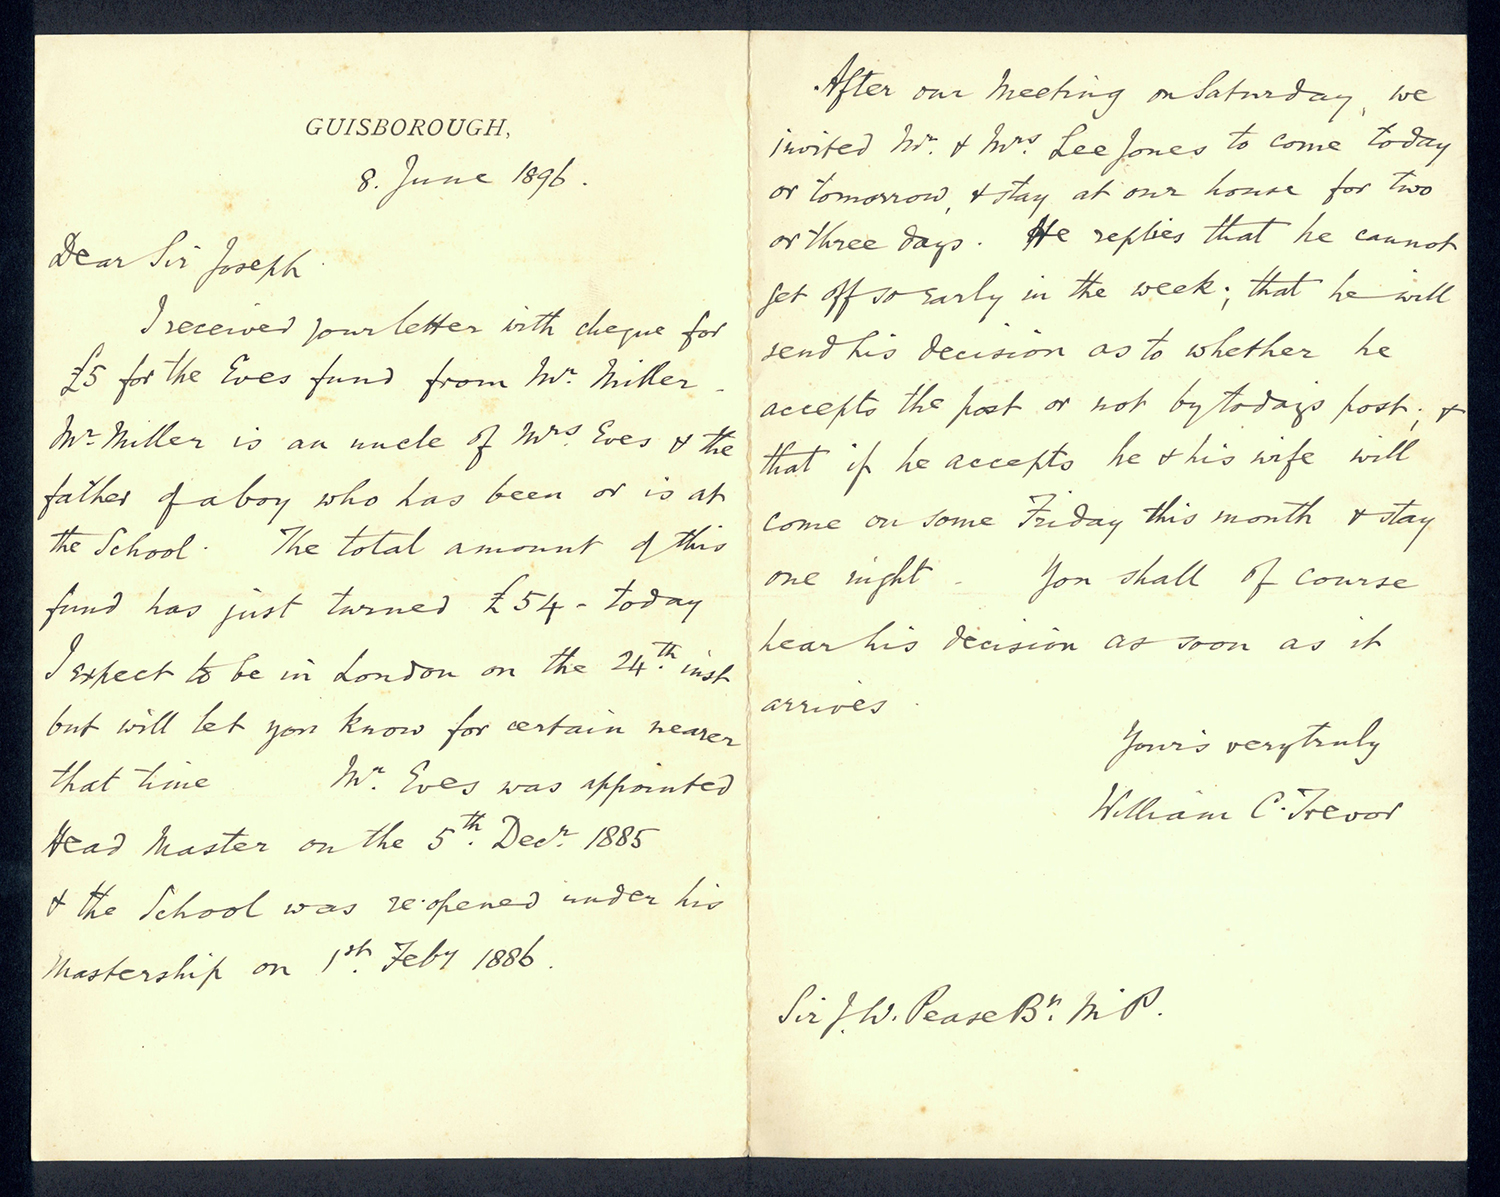 GUISBOROUGH,
8. June 1896.
Dear Sir Joseph
I received your letter with cheque for
£5 for the Eves fund from Mr. Miller -
Mr. Miller is an uncle of Mrs. Eves & the
father of a boy who has been or is at
the School. The total amount of this
fund has just turned £54 - today
I expect to be in London on the 24th. inst
but will let you know for certain nearer
that time Mr. Eves was appointed
Head Master on the 5th. Decr. 1885
& the School was re-opened under his
Mastership on 1st. Feby 1886.
After our Meeting on Saturday, we
invited Mr. & Mrs. Lee Jones to come today
or tomorrow, & stay at our house for two
or three days. He replies that he cannot
get off so early in the week; that he will
send his decision as to whether he
accepts the post or not by today's post; &
that if he accepts he & his wife will
come on some Friday this month & stay
one night - You shall of course
hear his decision as soon as it
arrives.
Yours very truly
William C. Trevor
Sir J. W. Pease Bt. M P.